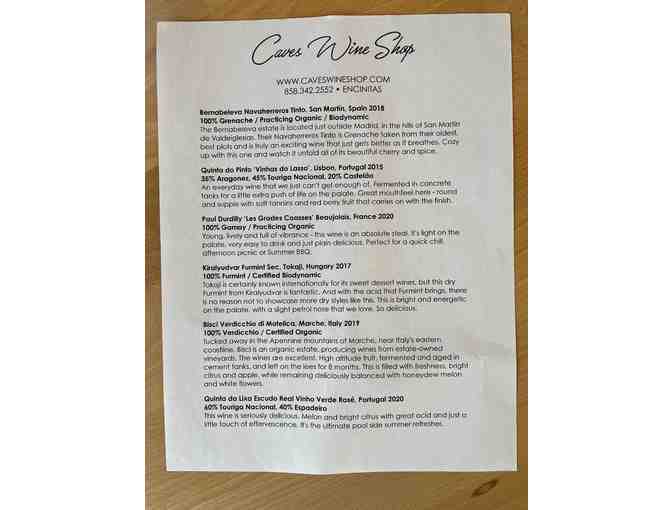 Caves Wine Shop
WWW.CAVESWINESHOP.COM
858.342.2552 • ENCINITAS
Bernabeleva Navaherreros Tinto, San Martin, Spain 2018
100% Grenache / Practicing Organic / Biodynamic
The Bernabeleva estate is located just outside Madrid, in the hills of San Martin
de Valdeiglesias. Their Navaherreros Tinto is Grenache taken from their oldest,
best plots and is truly an exciting wine that just gets better as it breathes. Cozy
up with this one and watch it unfold all of its beautiful cherry and spice.
Quinta do Pinto 'Vinhas do Lasso', Lisbon, Portugal 2015
35% Aragonez, 45% Touriga Nacional, 20% Castelão
An everyday wine that we just can't get enough of. Fermented in concrete
tanks for a little extra push of life on the palate. Great mouthfeel here - round
and supple with soft tannins and red berry fruit that carries on with the finish.
Paul Durdilly 'Les Grades Coasses' Beaujolais, France 2020
100% Gamay / Practicing Organic
Young, lively and full of vibrance - this wine is an absolute steal. It's light on the
palate, very easy to drink and just plain delicious. Perfect for a quick chill,
afternoon picnic or Summer BBQ.
Kiralyudvar Furmint Sec, Tokaji, Hungary 2017
100% Furmint / Certified Biodynamic
Tokaji is certainly known internationally for its sweet dessert wines, but this dry
Furmint from Kiralyudvar is fantastic. And with the acid that Furmint brings, there
is no reason not to showcase more dry styles like this. This is bright and energetic
on the palate, with a slight petrol nose that we love. So delicious.
Bisci Verdicchio di Matelica, Marche, Italy 2019
100% Verdicchio / Certified Organic
Tucked away in the Apennine mountains of Marche, near Italy's eastern
coastline, Bisci is an organic estate, producing wines from estate-owned
vineyards. The wines are excellent. High altitude fruit, fermented and aged in
cement tanks, and left on the lees for 8 months. This is filled with freshness, bright
citrus and apple, while remaining deliciously balanced with honeydew melon
and white flowers.
Quinta da Lixa Escudo Real Vinho Verde Rosé, Portugal 2020
60% Touriga Nacional, 40% Espadeiro
This wine is seriously delicious. Melon and bright citrus with great acid and just a
little touch of effervescence. It's the ultimate pool side summer refresher.